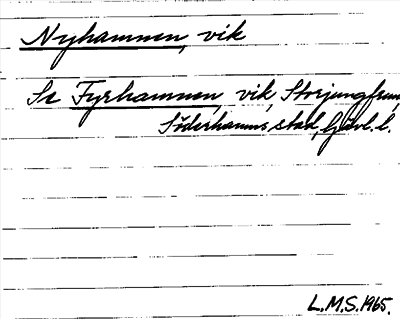 Nyhamnen, vik
Se Fyrhamnen, vik, Storjungfrun,
Söderhamns stad, Gävl. l.
L.M.S. 1965.